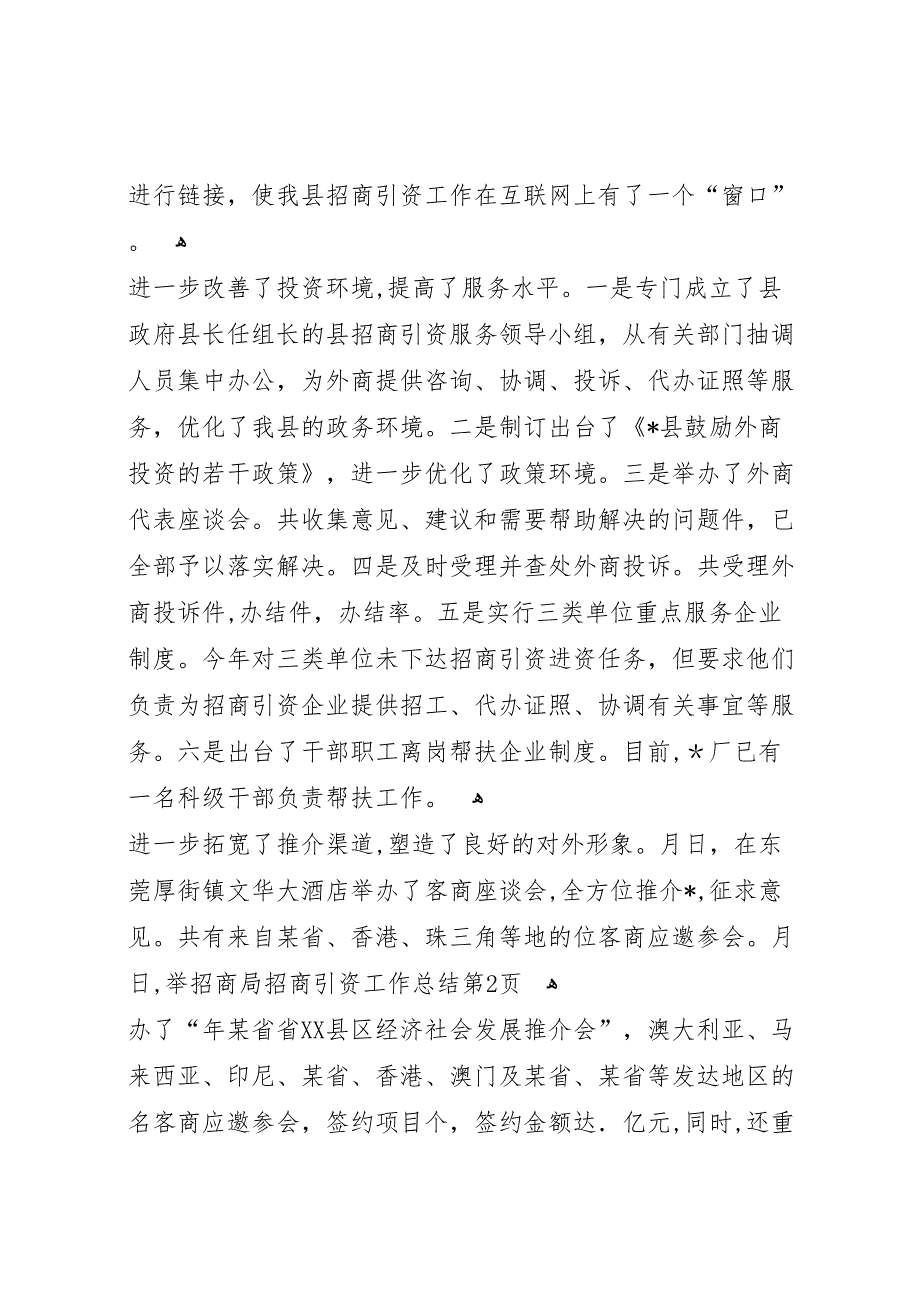 进行链接，使我县招商引资工作在互联网上有了一个“窗口”
。 ﻫ
进一步改善了投资环境,提高了服务水平。一是专门成立了县
政府县长任组长的县招商引资服务领导小组，从有关部门抽调
人员集中办公，为外商提供咨询、协调、投诉、代办证照等服
务，优化了我县的政务环境。二是制订出台了《*县鼓励外商
投资的若干政策》，进一步优化了政策环境。三是举办了外商
代表座谈会。共收集意见、建议和需要帮助解决的问题件，已
全部予以落实解决。四是及时受理并查处外商投诉。共受理外
商投诉件,办结件，办结率。五是实行三类单位重点服务企业
制度。今年对三类单位未下达招商引资进资任务，但要求他们
负责为招商引资企业提供招工、代办证照、协调有关事宜等服
务。六是出台了干部职工离岗帮扶企业制度。目前,＊厂已有
一名科级干部负责帮扶工作。 ﻫ
进一步拓宽了推介渠道,塑造了良好的对外形象。月日，在东
莞厚街镇文华大酒店举办了客商座谈会,全方位推介*,征求意
见。共有来自某省、香港、珠三角等地的位客商应邀参会。月
日,举招商局招商引资工作总结第2页 ﻫ
办了“年某省省XX县区经济社会发展推介会”，澳大利亚、马
来西亚、印尼、某省、香港、澳门及某省、某省等发达地区的
名客商应邀参会，签约项目个，签约金额达．亿元,同时,还重